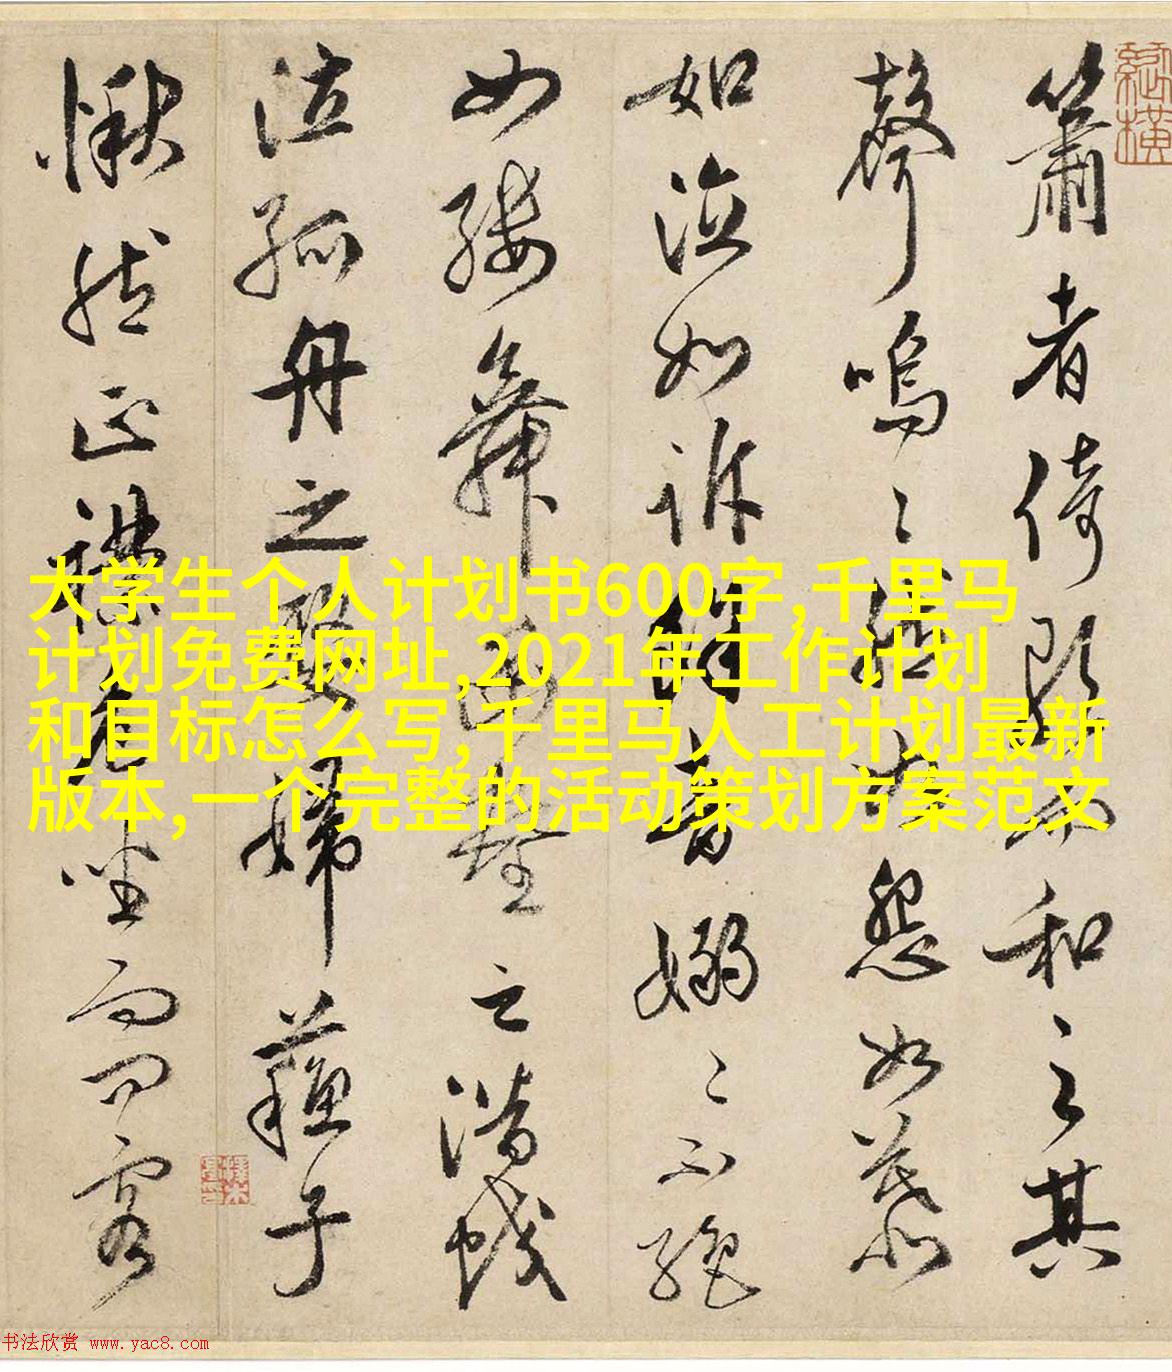 簫者倚歌而和之其
聲嗚〻然如怨如慕
如泣如訴餘音嫋〻不絕
如縷舞幽壑之潛蛟
泣孤舟之嫠婦蘇子
愀然正襟危坐而問客
大学生个人计划书600字,千里马
计划免费网址,2021年工作计划
和目标怎么写,千里马人工计划最新
版本,一个完整的活动策划方案范文
书法欣赏 www.yac8.com